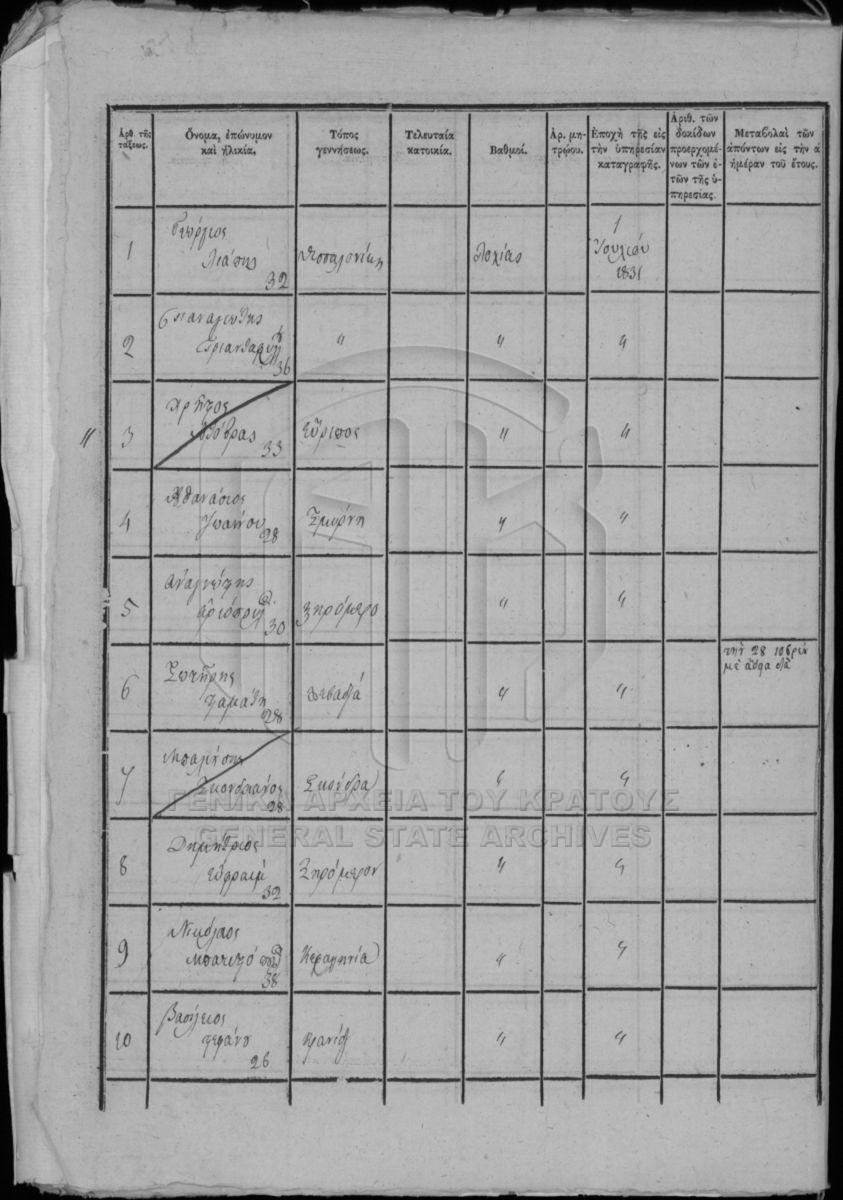 Ἀρθ. τῆς τάξεως.
Ὄνομα, ἐπώνυμον καὶ ἡλικία.
Τόπος γεννήσεως.
Τελευταία κατοικία.
Βαθμοί.
Ἀρ. μητρώου.
Ἐποχὴ τῆς εἰς τὴν ὑπηρεσίαν καταγραφῆς.
Ἀριθ. τῶν δοκίδων προερχομένων τῶν ἐτῶν τῆς ὑπηρεσίας.
Μεταβολαὶ τῶν ἀπόντων εἰς τὴν ά ἡμέραν τοῦ ἔτους.
1
Γεώργιος
Λιάπης
32
Θεσσαλονίκη
Λοχίας
1
Ἰουλίου
1831
2
Παναγιώτης
36
"
"
"
"
3
Χρῆστος
33
Εὔριπος
"
"
4
Ἀθανάσιος
Ἰωάννου
28
Σμύρνη
"
"
5
Ἀναγνώστης
30
Ξηρόμερο
"
"
6
Σωτήρης
Σταμάτη
28
"
"
τὴν 28 10βρίου
7
Σκονδριάνος
28
Σκόνδρα
"
"
8
Δημήτριος
Εὐφραὶμ
32
Ξηρόμερον
"
"
9
Νικόλαος
38
"
"
10
Βασίλειος
Στεφάνου
26
"
"
ΓΕΝΙΚΑ ΑΡΧΕΙΑ ΤΟΥ ΚΡΑΤΟΥΣ
GENERAL STATE ARCHIVES